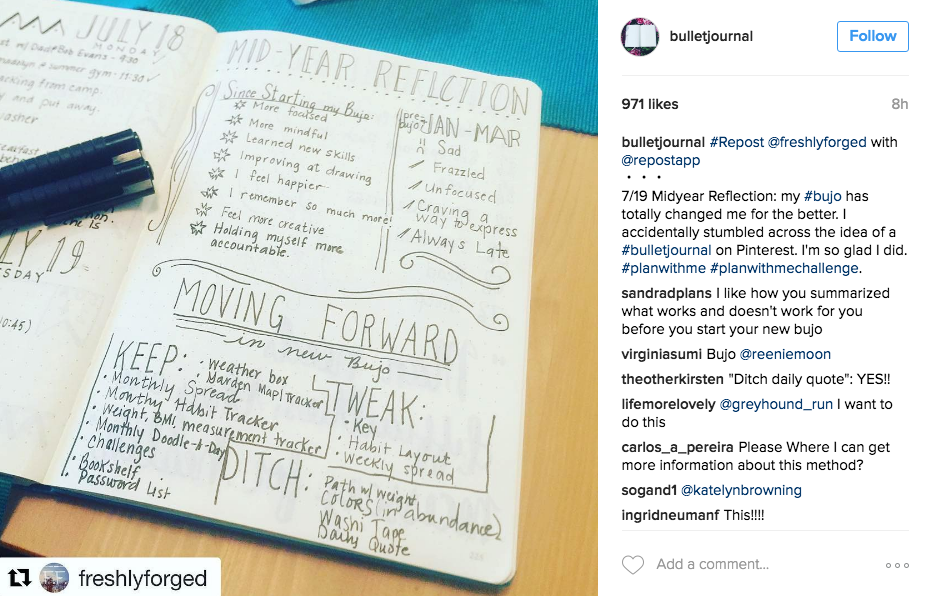 JULY 18
MONDAY
Bob Evans - 9:30
summer gym - 11:30
packing from camp.
and put away.
MID-YEAR REFLCTION
Since Starting my Bujo:
More focused
More mindful
Learned new skills
Improving at drawing
I feel happier
I remember so much more!
Feel more creative
Holding myself more
accountable.
pre-
bujo
JAN - MAR
Sad
Frazzled
Unfocused
Craving a
way to express
Always Late
LY 19
ESDAY
0:45)
MOVING FORWARD
in new Bujo
KEEP:
Weather box
Garden Map/Tracker
Monthly Spread
Monthy Habit Tracker
Weight, BMI, measurement tracker
Monthly Doodle-A-Day
Challenges
Bookshelf
Password List
TWEAK:
Key
Habit Layout
Weekly Spread
DITCH:
Path w/ weight,
Colors (in abundance)
Washi Tape
Daily Quote
freshlyforged
bulletjournal
Follow
971 likes
8h
bulletjournal #Repost @freshlyforged with
@repostapp
• • •
7/19 Midyear Reflection: my #bujo has
totally changed me for the better. I
accidentally stumbled across the idea of a
#bulletjournal on Pinterest. I'm so glad I did.
#planwithme #planwithmechallenge.
sandradplans I like how you summarized
what works and doesn't work for you
before you start your new bujo
virginiasumi Bujo @reeniemoon
theotherkirsten "Ditch daily quote": YES!!
lifemorelovely @greyhound_run I want to
do this
carlos_a_pereira Please Where I can get
more information about this method?
sogand1 @katelynbrowning
ingridneumanf This!!!!
Add a comment...